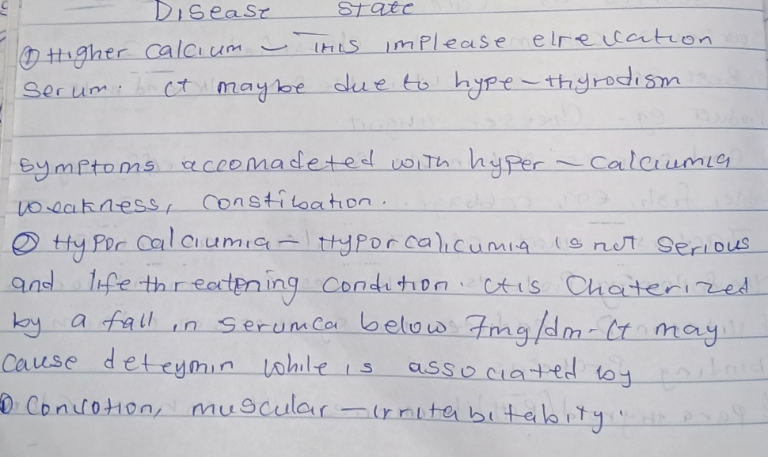 Disease State
① Higher calcium – This implease elrevation
Serum. It maybe due to hype-thyrodism
Symptoms accomadeted with hyper-calciumia
weakness, constibation.
② Hypor calciumia – Hyporcalicumia is not serious
and life threatening condition. It is Chaterized
by a fall in serumca below 7mg/dm- It may
cause deteymin while is associated by
① Convotion, muscular-irritabitabity.